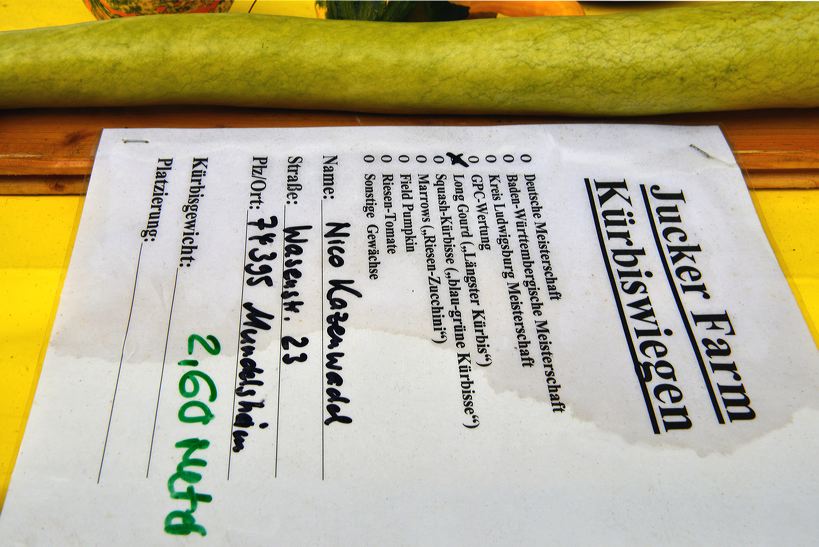 Jucker Farm
Kürbiswiegen
o Deutsche Meisterschaft
o Baden-Württembergische Meisterschaft
o Kreis Ludwigsburg Meisterschaft
o GPC-Wertung
x Long Gourd („Längster Kürbis“)
o Squash-Kürbisse („blau-grüne Kürbisse“)
o Marrows („Riesen-Zucchini“)
o Field Pumpkin
o Riesen-Tomate
o Sonstige Gewächse
Name: Nico Katzenwadel
Straße: Wasenstr. 23
Plz/Ort: 74395 Mundelsheim
Kürbisgewicht: 2,60 Meter
Platzierung: